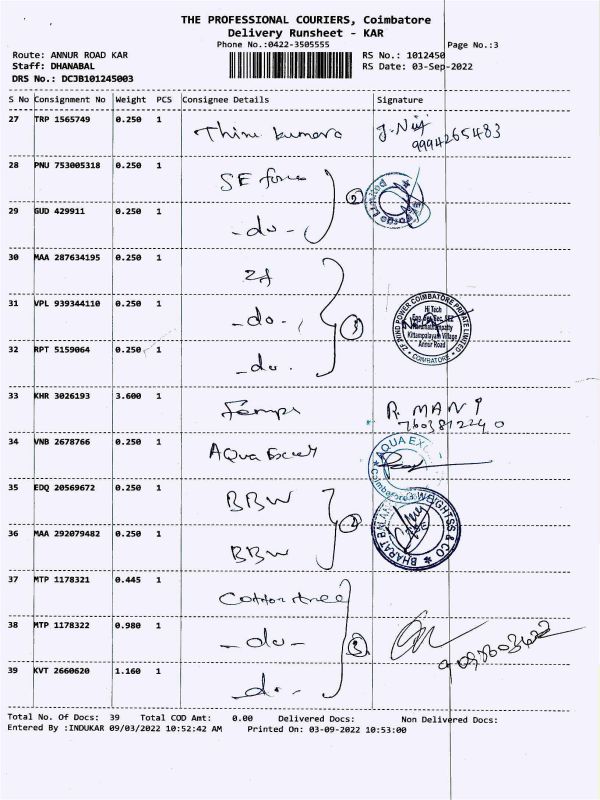 THE PROFESSIONAL COURIERS, Coimbatore
Delivery Runsheet - KAR
Phone No.:0422-3505555
Page No.:3
Route: ANNUR ROAD KAR
RS No.: 1012450
Staff: DHANABAL
RS Date: 03-Sep-2022
DRS No.: DCJB101245003
S No Consignment No Weight PCS Consignee Details Signature
27 TRP 1565749 0.250 1
9994265483
28 PNU 753005318 0.250 1 SE force
29 GUD 429911 0.250 1 -do-
2
30 MAA 287634195 0.250 1 ZF
31 VPL 939344110 0.250 1 -do-
3
ZF WIND POWER COIMBATORE PRIVATE LIMITED
Hi Tech
Kittampalayam Village
Annur Road
COIMBATORE
32 RPT 5159064 0.250 1 -do-
33 KHR 3026193 3.600 1
R. MANI
34 VNB 2678766 0.250 1 Aqua Excel
AQUA EXC
35 EDQ 20569672 0.250 1 BBW
36 MAA 292079482 0.250 1 BBW
2
BHARAT BALAA WEIGHTSS & CO
37 MTP 1178321 0.445 1 Cottontree
38 MTP 1178322 0.980 1 -do-
3
39 KVT 2660620 1.160 1 -do-
Total No. Of Docs: 39 Total COD Amt: 0.00 Delivered Docs: Non Delivered Docs:
Entered By :INDUKAR 09/03/2022 10:52:42 AM Printed On: 03-09-2022 10:53:00